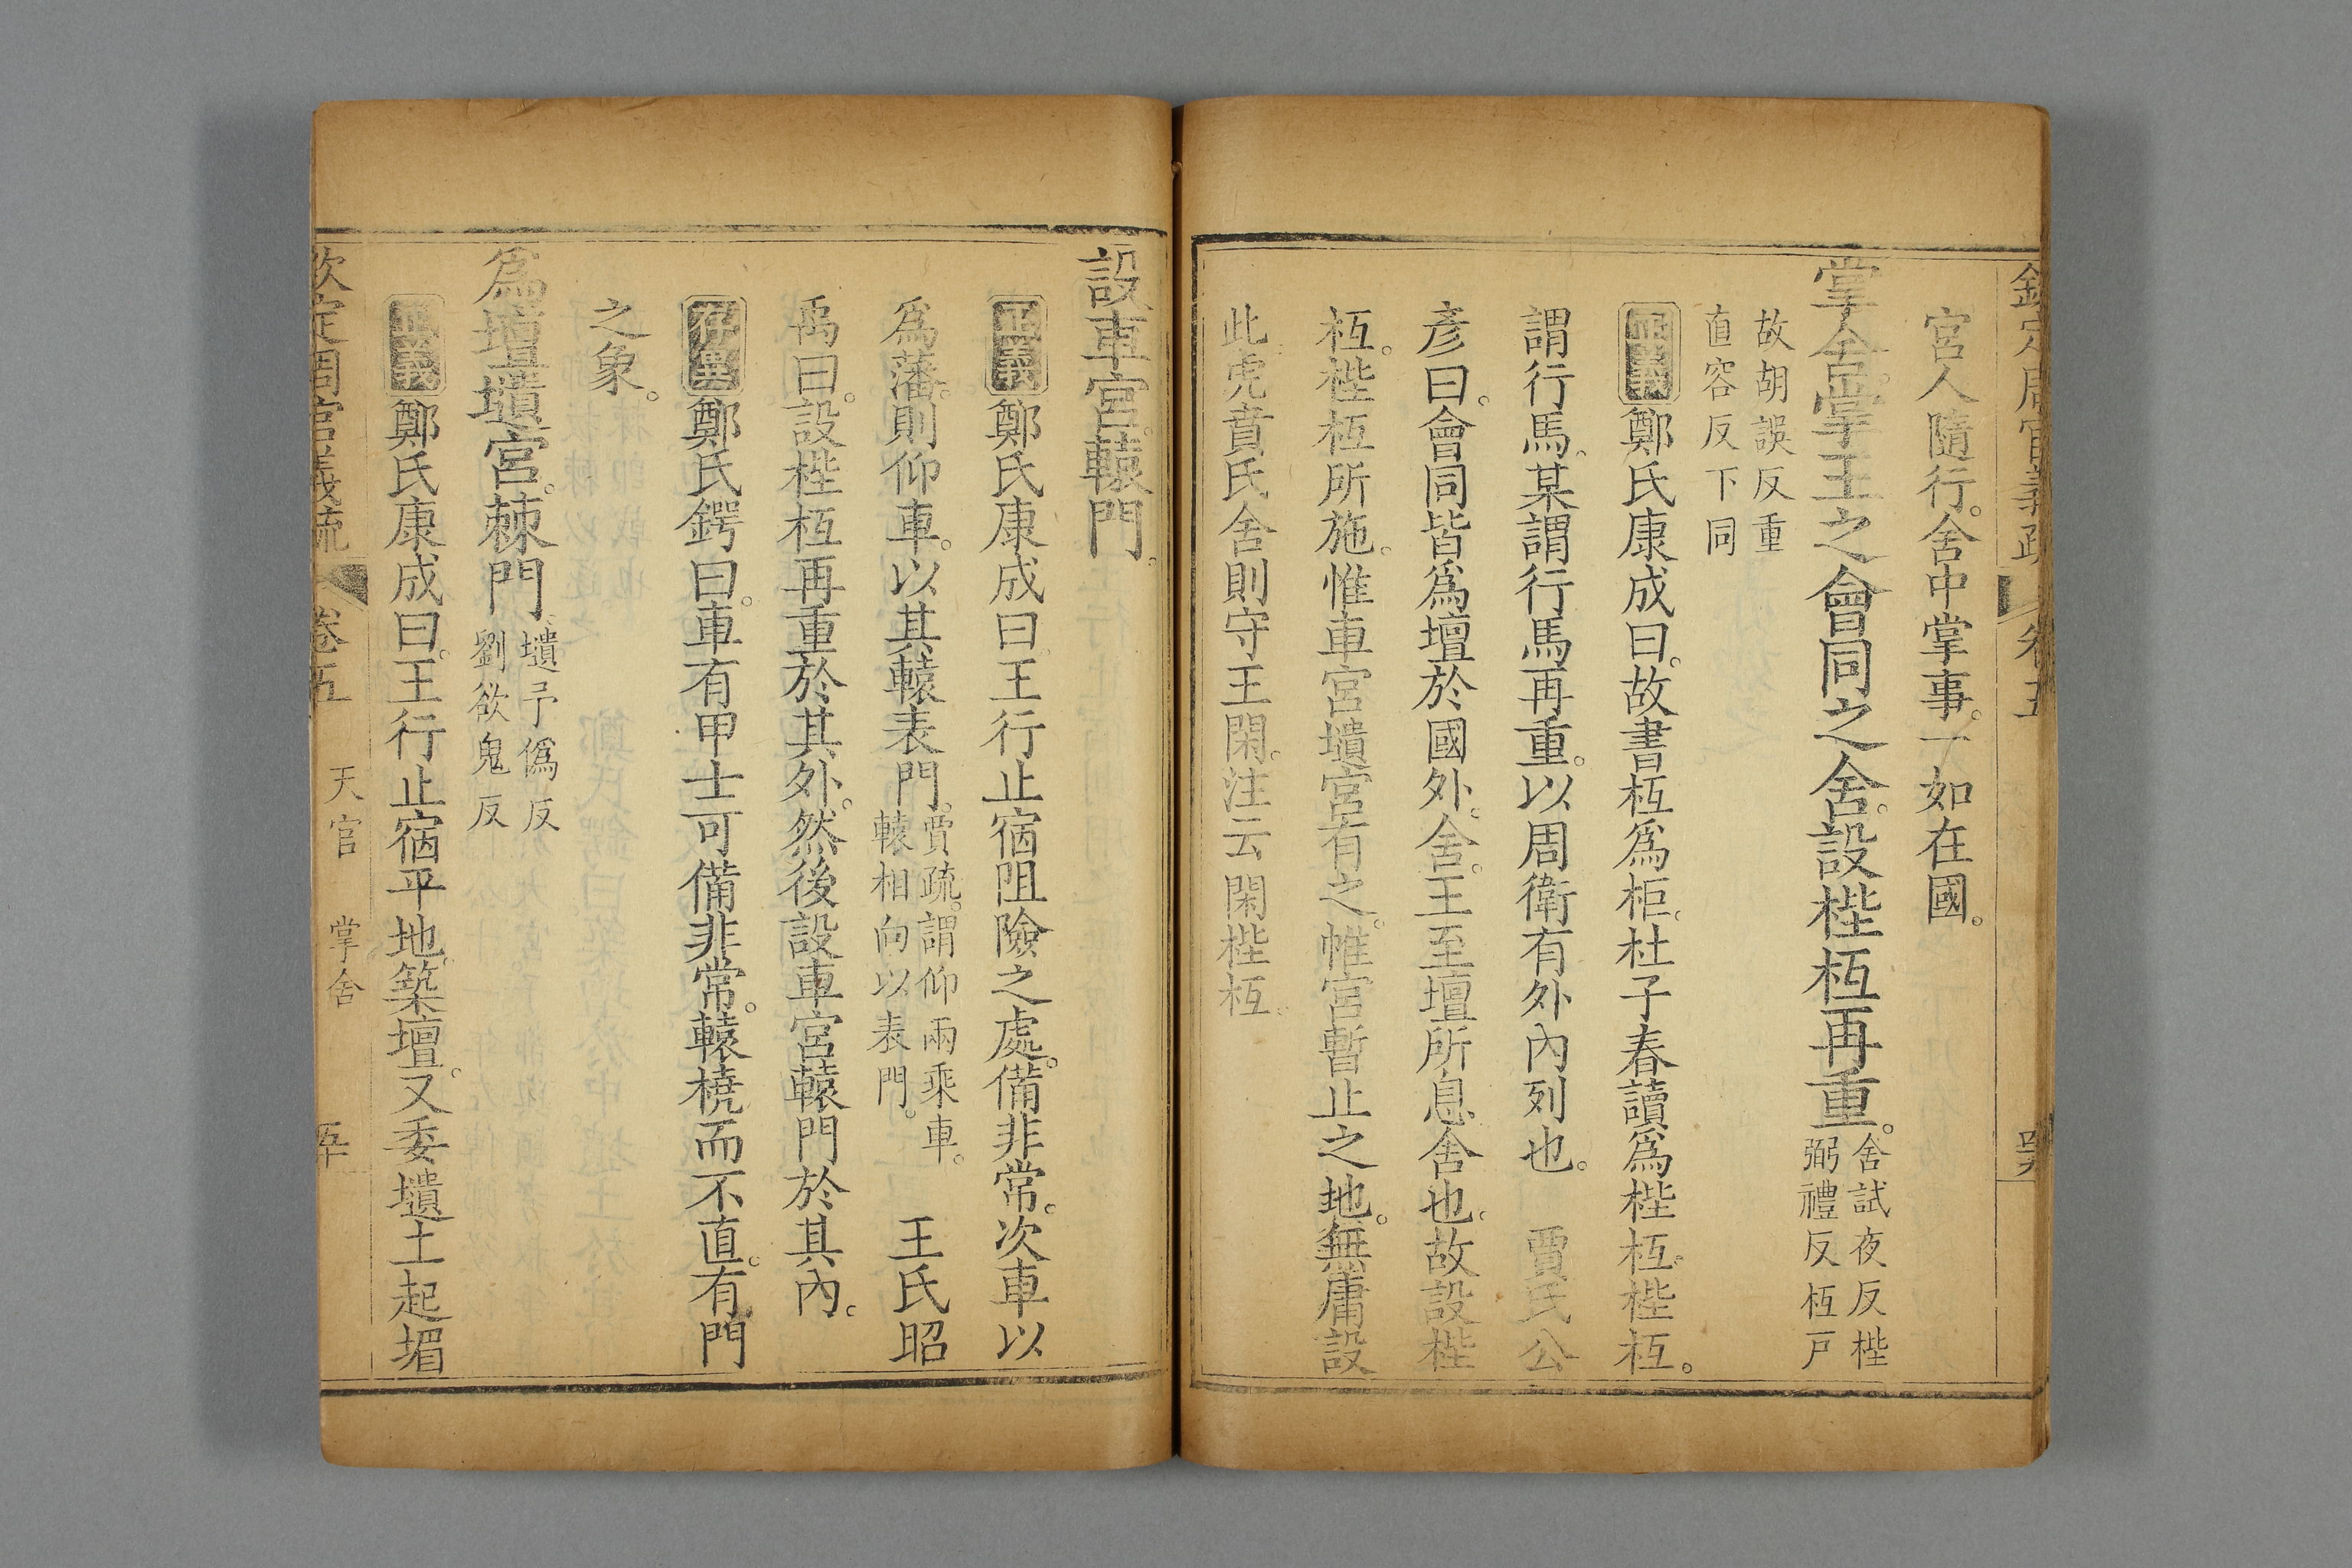 欽定周官義疏 卷五
宮人隨行。舍中掌事。一如在國。
掌舍。掌王之會同之舍。設梐枑再重。舍試夜反梐
弼禮反枑戸
故胡誤反重
直容反下同
正義鄭氏康成曰。故書枑爲柜。杜子春讀爲梐枑。梐枑。
謂行馬。某謂行馬再重。以周衛有外內列也。 賈氏公
彥曰。會同皆爲壇於國外。舍。王至壇所息舍也。故設梐
枑。梐枑所施。惟車宮壝宮有之。帷宮暫止之地。無庸設
此虎賁氏舍則守王閑。注云閑梐枑。
設車宮。轅門。
正義鄭氏康成曰。王行止宿阻險之處。備非常。次車以
爲藩。則仰車。以其轅表門。賈疏。謂仰兩乘車。
轅相向以表門。
王氏昭
禹曰。設梐枑再重於其外。然後設車宮轅門於其內。
存異鄭氏鍔曰。車有甲士可備非常。轅橈而不直。有門
之象。
爲壇壝宮。棘門。壝予僞反
劉欲鬼反
正義鄭氏康成曰。王行止宿平地。築壇。又委壝土起堳
欽定周官義疏 卷五 天官 掌舍 五十